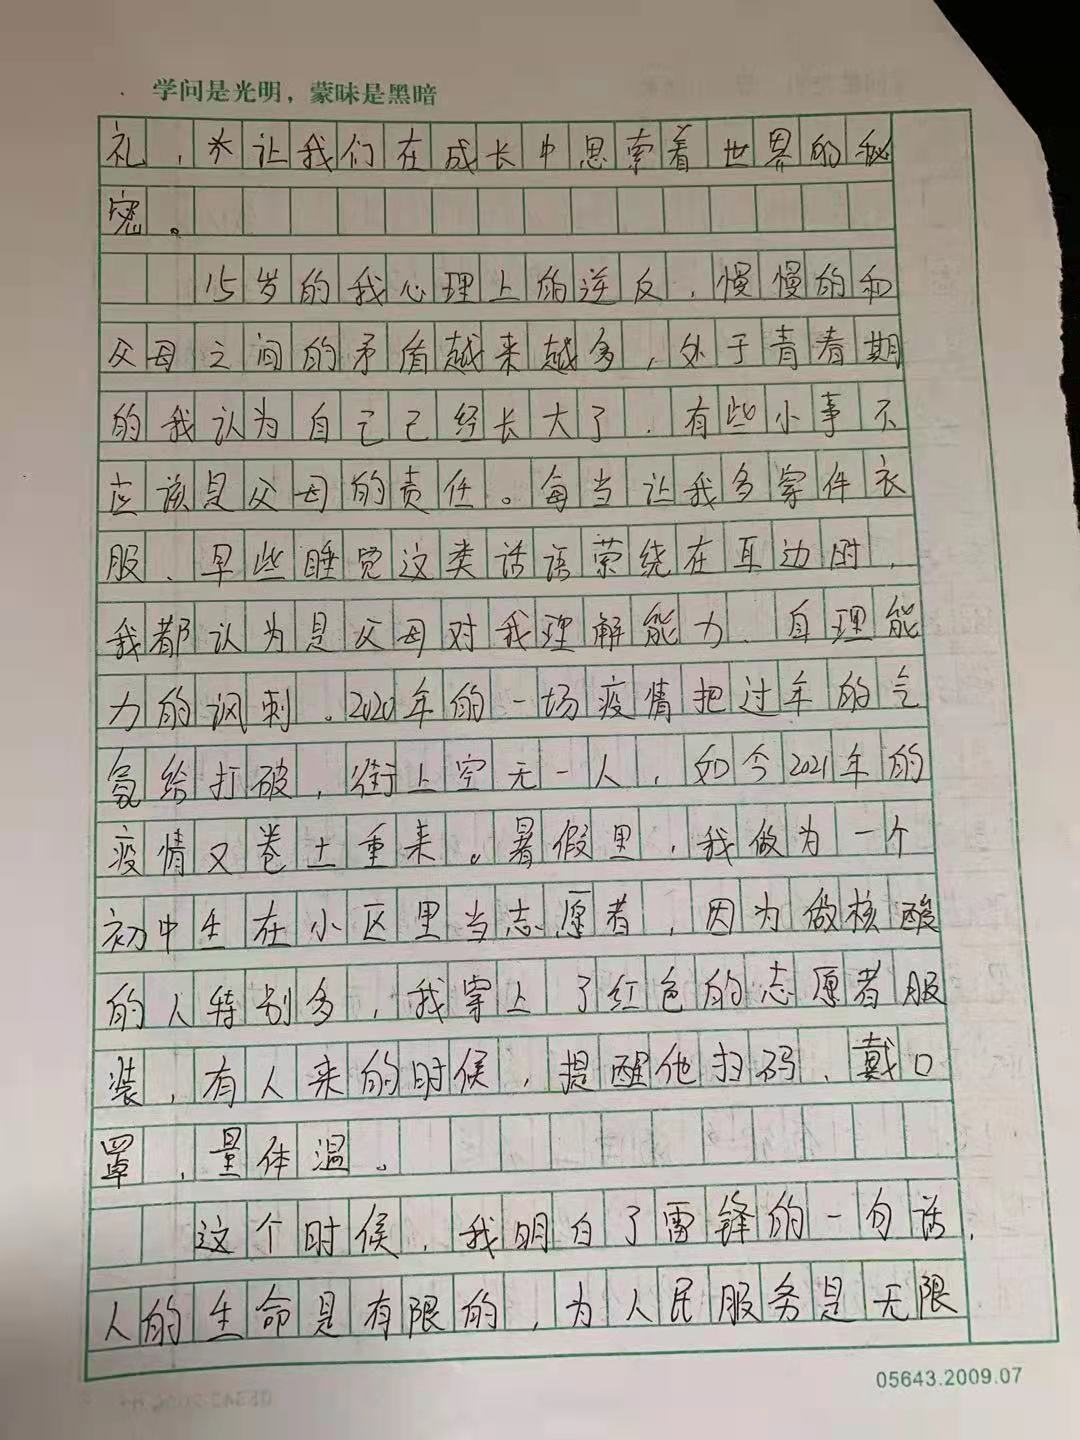 学问是光明，蒙昧是黑暗
礼，让我们在成长中思索着世界的秘
密。
15岁的我心理上的逆反，慢慢的和
父母之间的矛盾越来越多，处于青春期
的我认为自己已经长大了，有些小事不
应该是父母的责任。每当让我多穿件衣
服、早些睡觉这类话语萦绕在耳边时，
我都认为是父母对我理解能力、自理能
力的讽刺。2020年的一场疫情把过年的气
氛给打破，街上空无一人，如今2021年的
疫情又卷土重来。暑假里，我做为一个
初中生在小区里当志愿者，因为做核酸
的人特别多，我穿上了红色的志愿者服
装，有人来的时候，提醒他扫码、戴口
罩、量体温。
这个时候，我明白了雷锋的一句话，
人的生命是有限的，为人民服务是无限
05643.2009.07